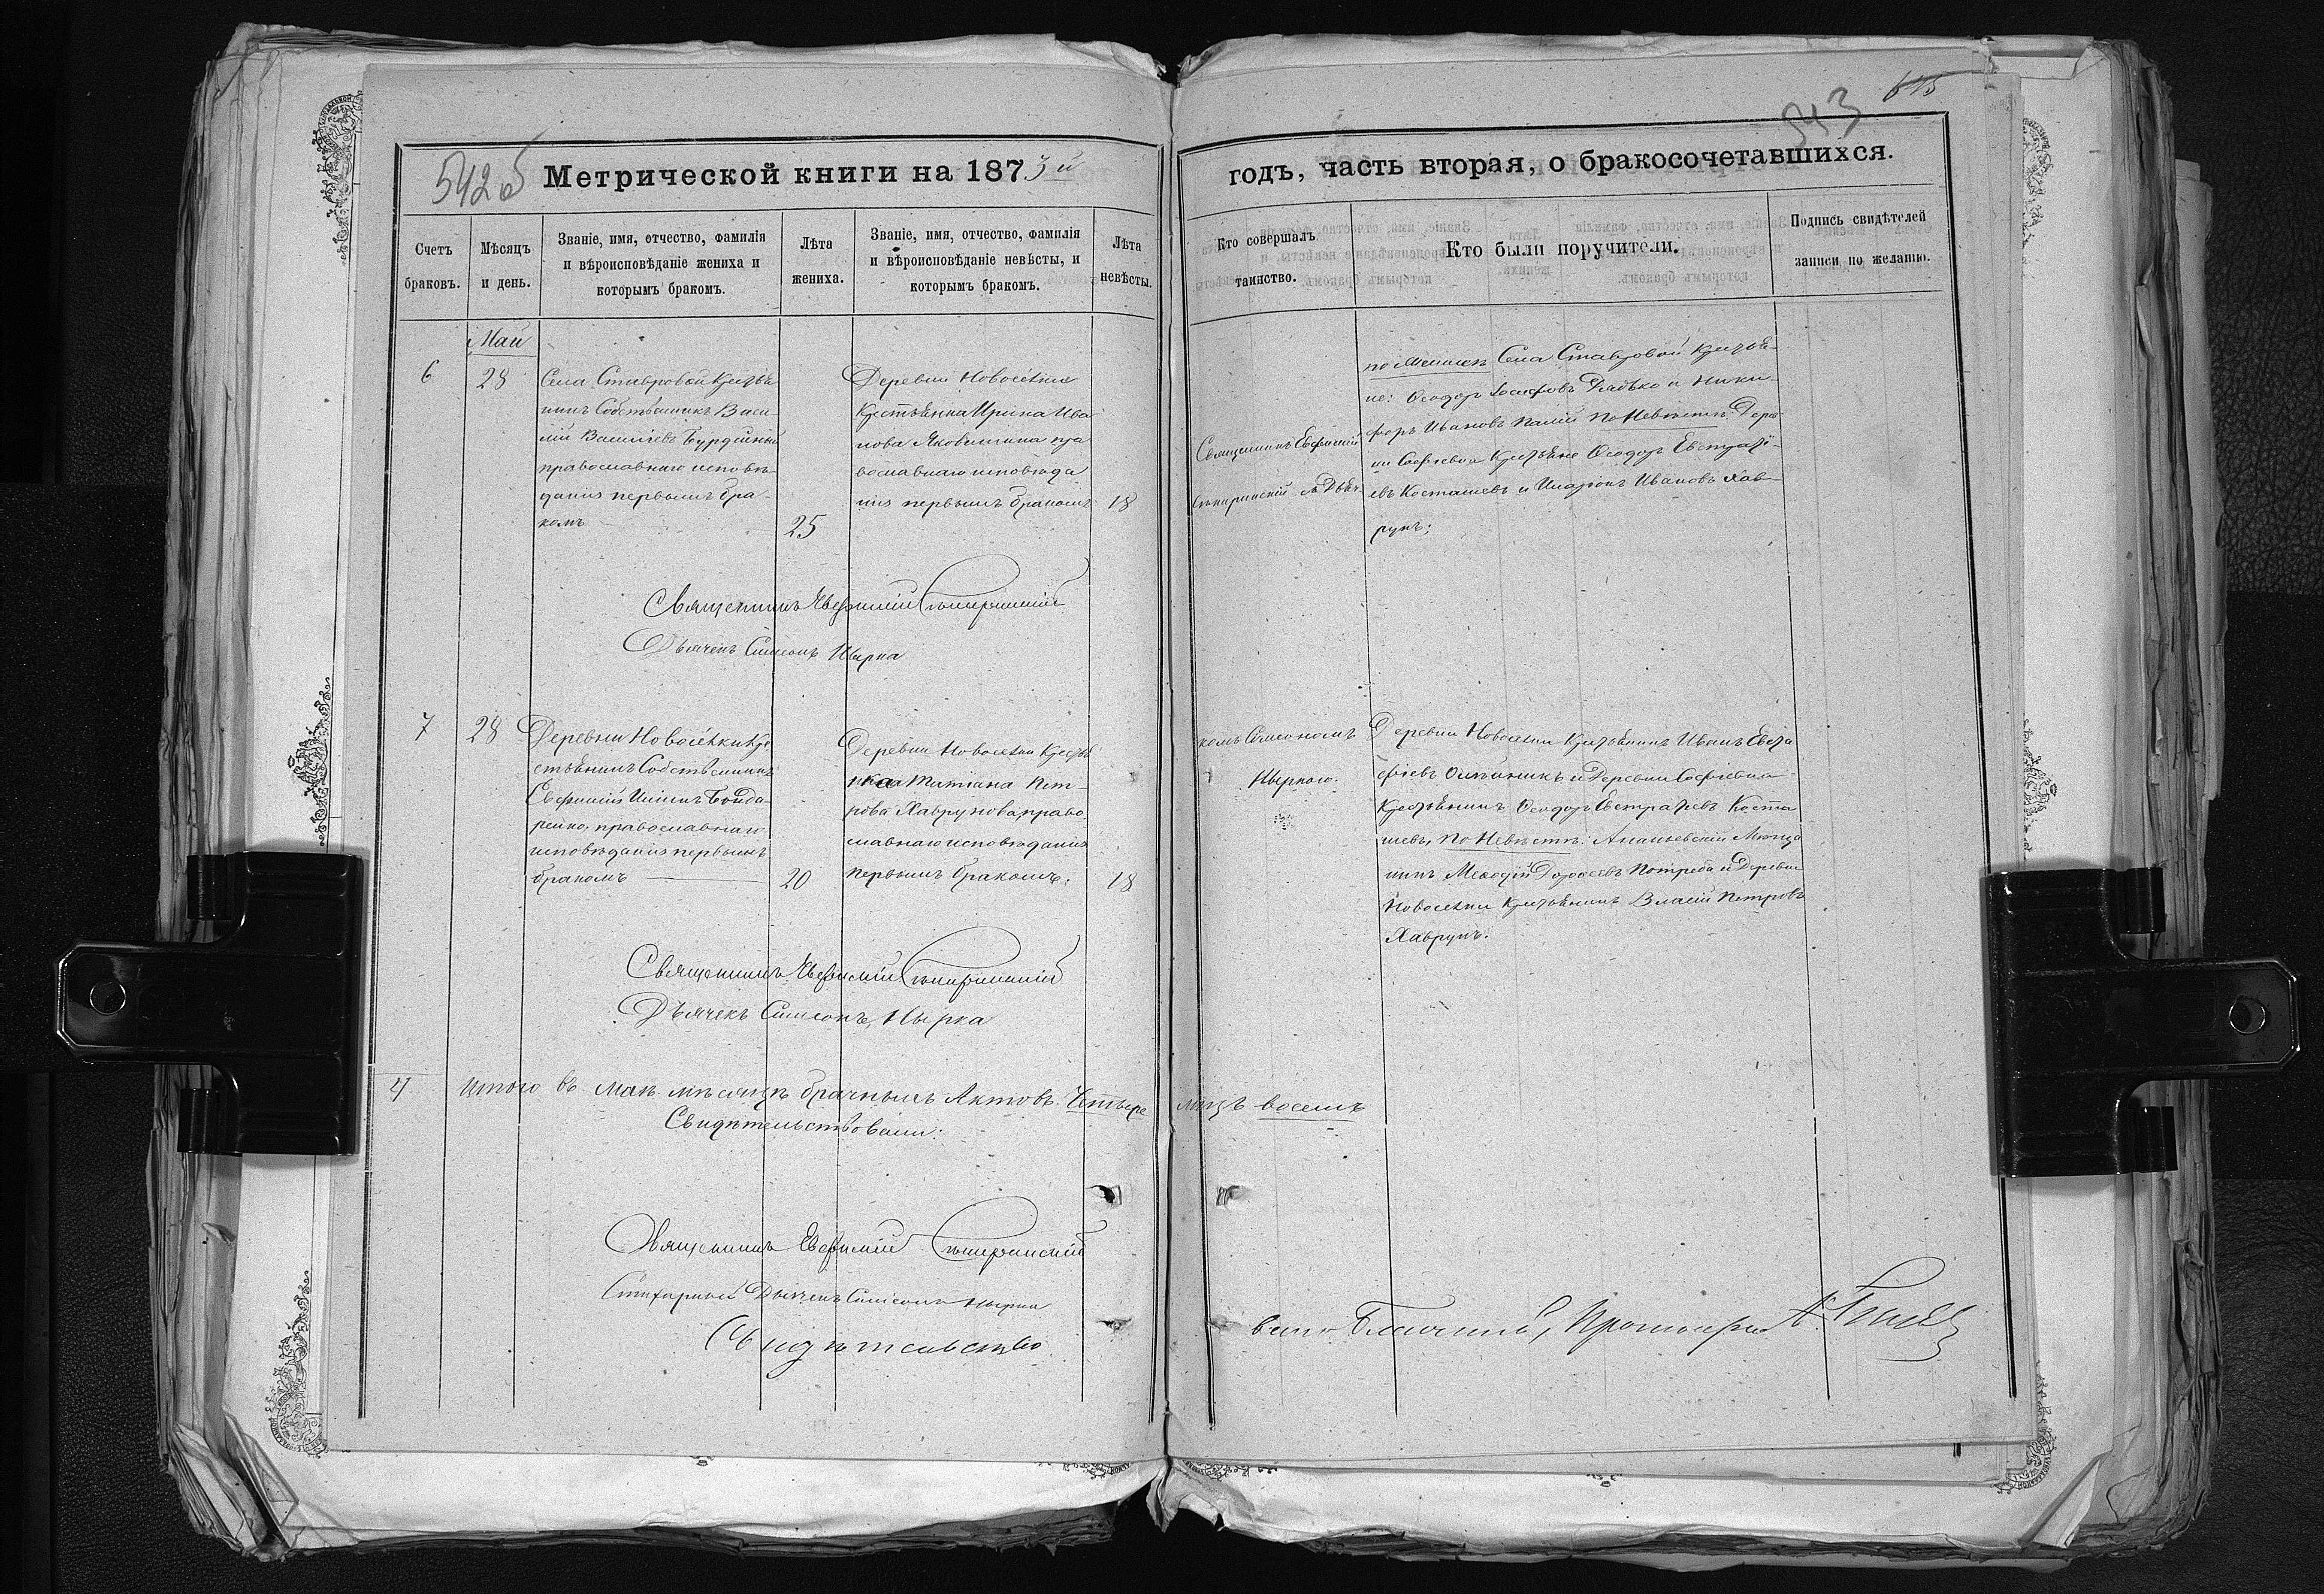 615
543
542 об
Метрической книги на 1873й
годъ, часть вторая, о бракосочетавшихся.
Счетъ браковъ.
Мѣсяцъ и день.
Званіе, имя, отчество, фамилія и вѣроисповѣданіе жениха и которымъ бракомъ.
Лѣта жениха.
Званіе, имя, отчество, фамилія и вѣроисповѣданіе невѣсты, и которымъ бракомъ.
Лѣта невѣсты.
Кто совершалъ таинство.
Кто были поручители.
Подпись свидѣтелей записи по желанію.
Май
6
28
Села Ставровой Кресть­я-
нинъ Собственникъ Васи-
лій Васильевъ Бурдейный
православнаго исповѣ-
данія первымъ бра-
комъ
25
Деревни Новосёлки
Крестьянка Ирина Ива-
нова Яковишина пра
вославнаго исповѣда
нія первымъ бракомъ
18
Священникъ Евфимій
съ Дьяч-
по Женихѣ Села Ставровой Крестья-
не: Ѳеодоръ Іосифовъ Дядько и Ники-
форъ Ивановъ Палій по Невѣстѣ: Дере-
ни Софіевки Крестьяне Ѳеодоръ Евстраті-
евъ Косташевъ и Иларіонъ Ивановъ Хав-
рунъ;
Священникъ Евфимій
Дьячекъ Симеонъ Нырка
7
28
Деревни Новосёлки Кре
стьянинъ Собственникъ
Евфимій Бонда-
ренко, православнаго
исповѣданія первымъ
бракомъ
20
Деревни Новоселки Крестья
нка Татіана Пет-
рова Хаврунова, право
славнаго исповѣданія
первымъ бракомъ.
18
комъ Симеономъ
Ныркою.
Деревни Новоселки Крестьянинъ Иванъ Евста
фіевъ Олейникъ и Деревни Софіевки
Крестьянинъ Ѳеодоръ Евстратіевъ Коста
шевъ, по Невѣстѣ: Ананьевскій Мѣща
нинъ Меѳодій Дороѳеевъ Потреба и Деревни
Новоселки Крестьянинъ Власій Петровъ
Хаврунъ.
Священникъ Евфимій
Дьячекъ Симеонъ Нырка
4
Итого въ Маѣ мѣсяцѣ брачныхъ Актовъ. Четыре
лицъ восемь
Свидѣтельствовали:
Священникъ Евфимій
Стихарный Дьячекъ Симеонъ Нырка
Свидѣтельство
валъ Благочинный, Протоіерей